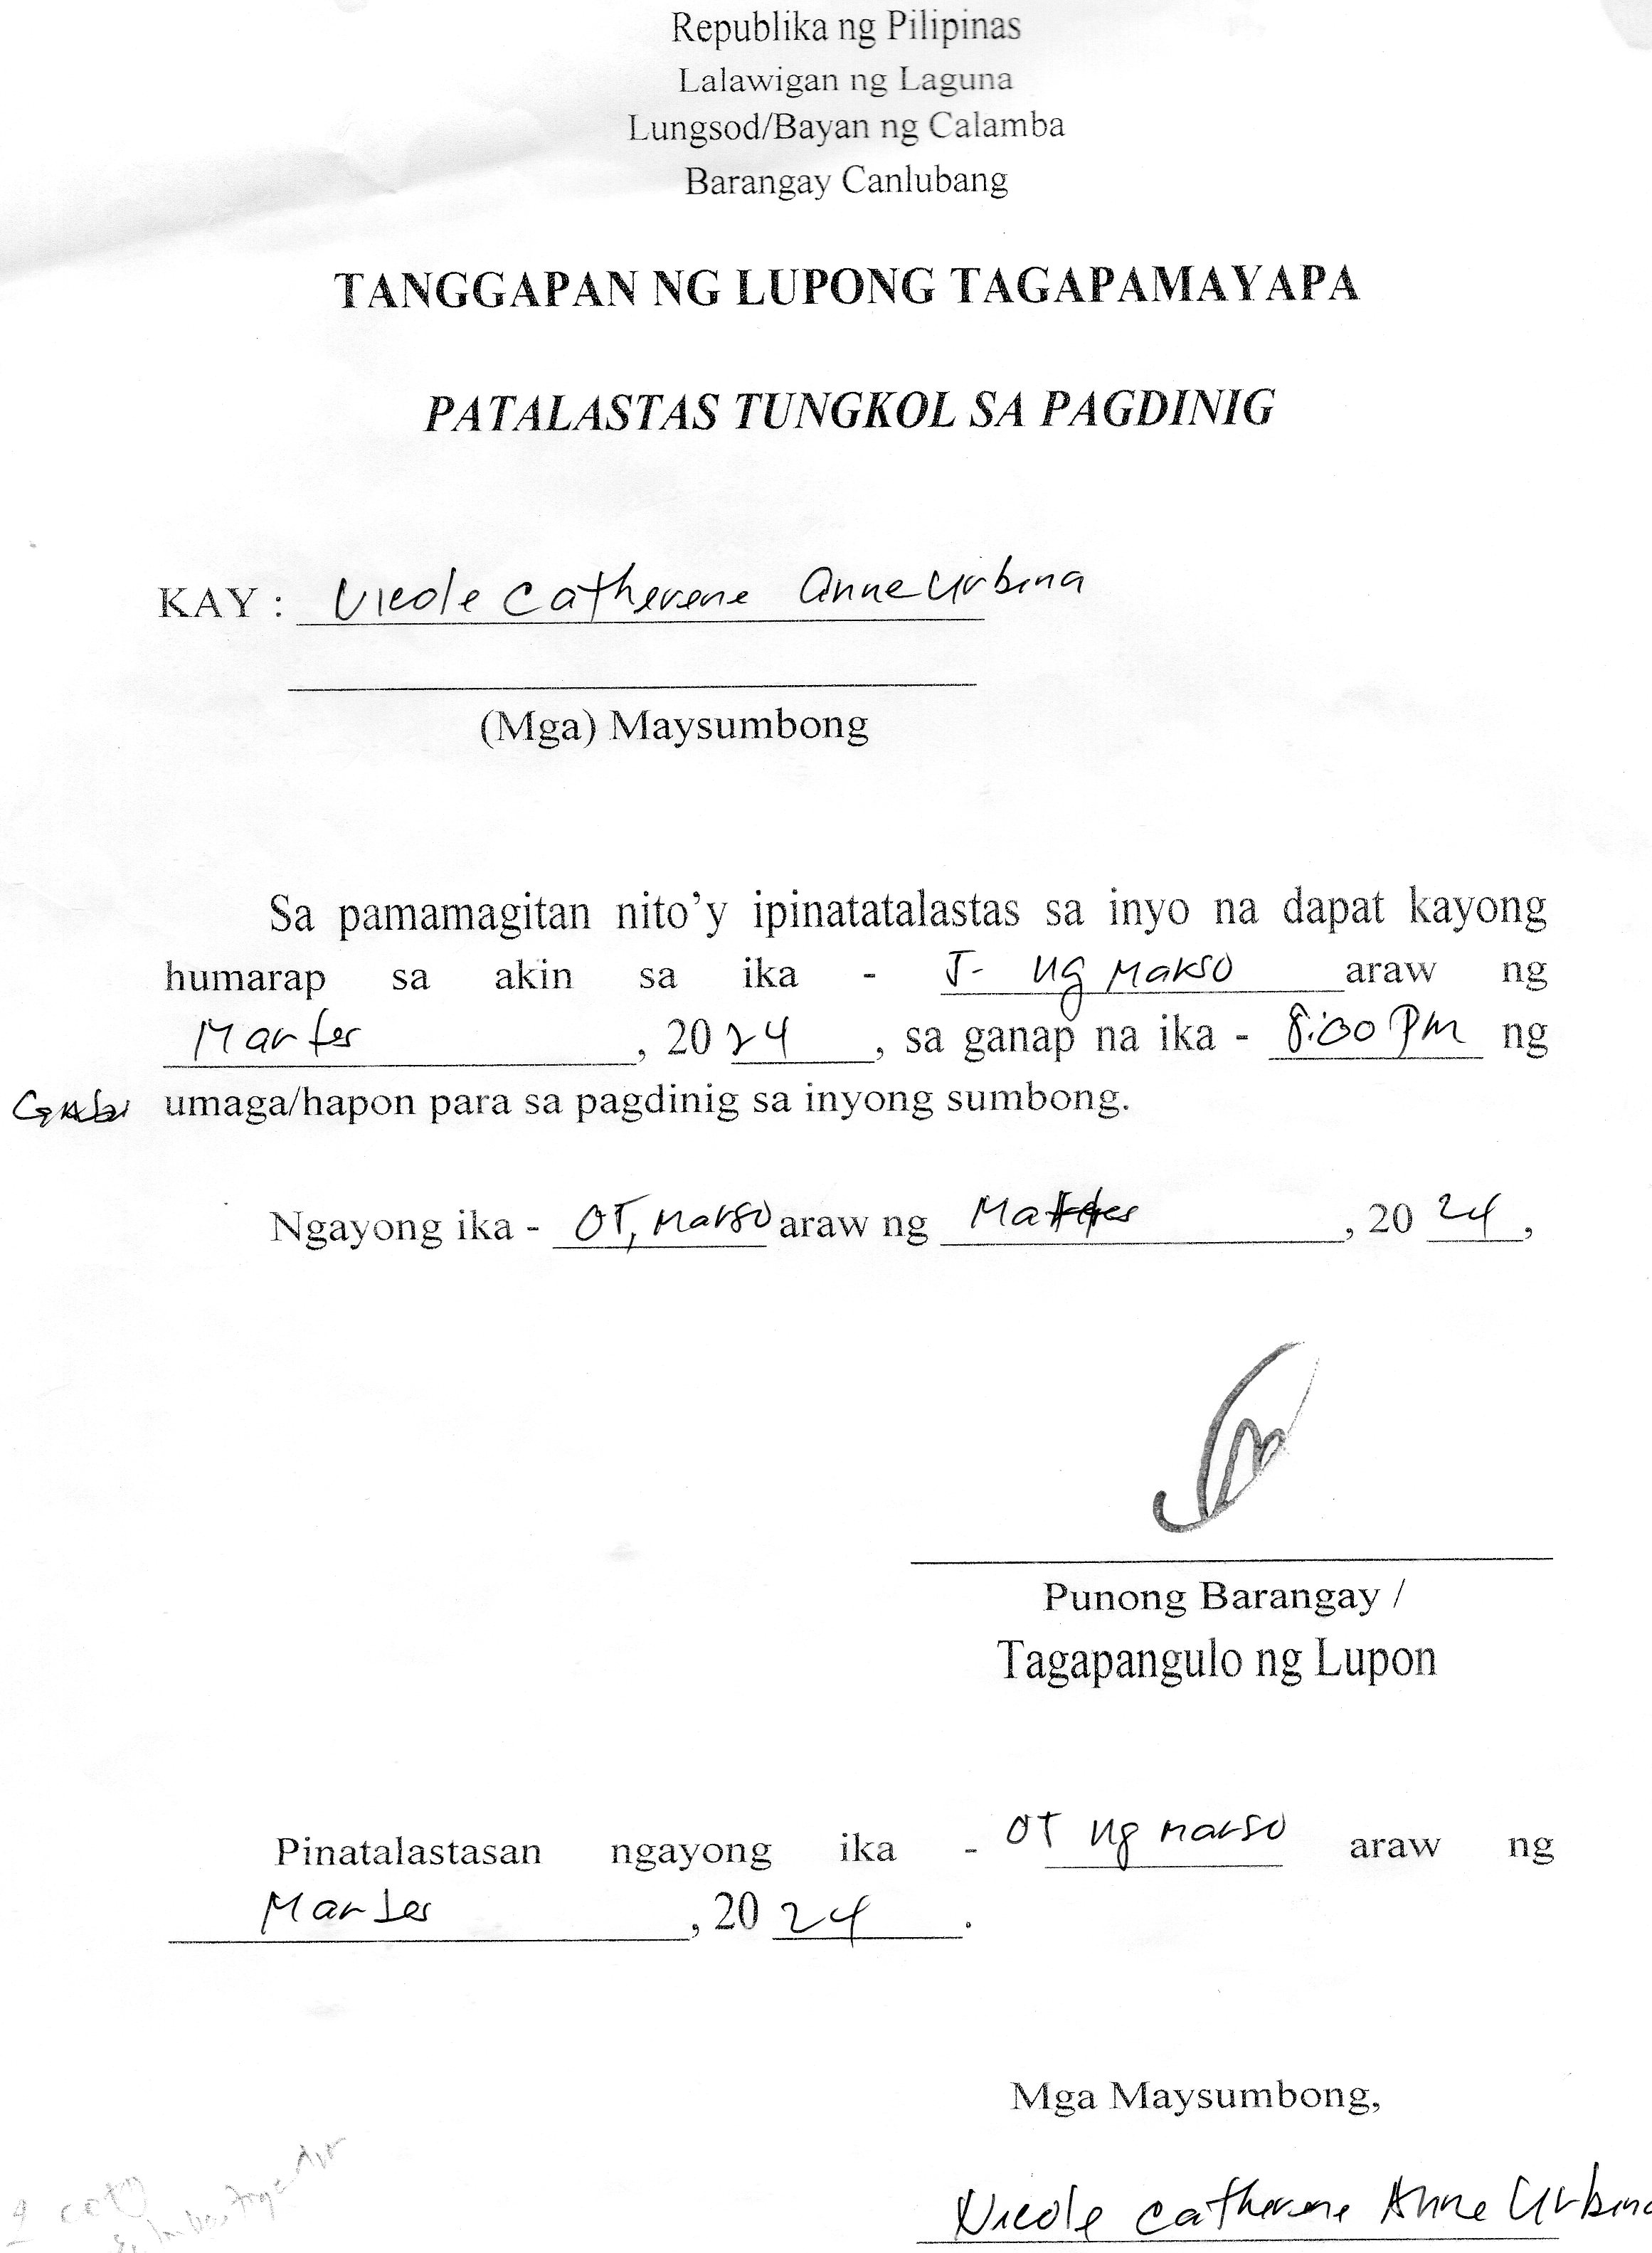 Republika ng Pilipinas
Lalawigan ng Laguna
Lungsod/Bayan ng Calamba
Barangay Canlubang
TANGGAPAN NG LUPONG TAGAPAMAYAPA
PATALASTAS TUNGKOL SA PAGDINIG
KAY : Nicole Catherene Anne Urbina
(Mga) Maysumbong
Sa pamamagitan nito'y ipinatatalastas sa inyo na dapat kayong
humarap sa akin sa ika - 5- ng Marso araw ng
Martes, 20 24, sa ganap na ika - 8:00 PM ng
umaga/hapon para sa pagdinig sa inyong sumbong.
Ngayong ika - 05, Marso araw ng Martes, 20 24,
Punong Barangay /
Tagapangulo ng Lupon
Pinatalastasan ngayong ika - 05 ng Marso araw ng
Martes, 20 24.
Mga Maysumbong,
Nicole Catherene Anne Urbina